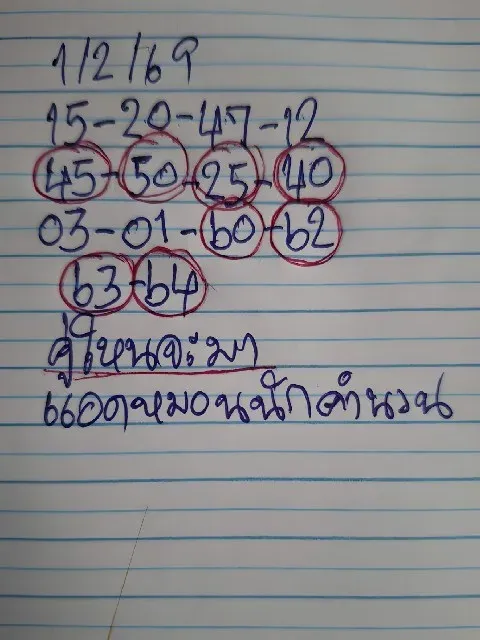 1/2/69
15-20-47-12
45-50-25-40
03-01-60-62
63-64
คู่ใหนจะมา
แอดหมอนนักคำนวน